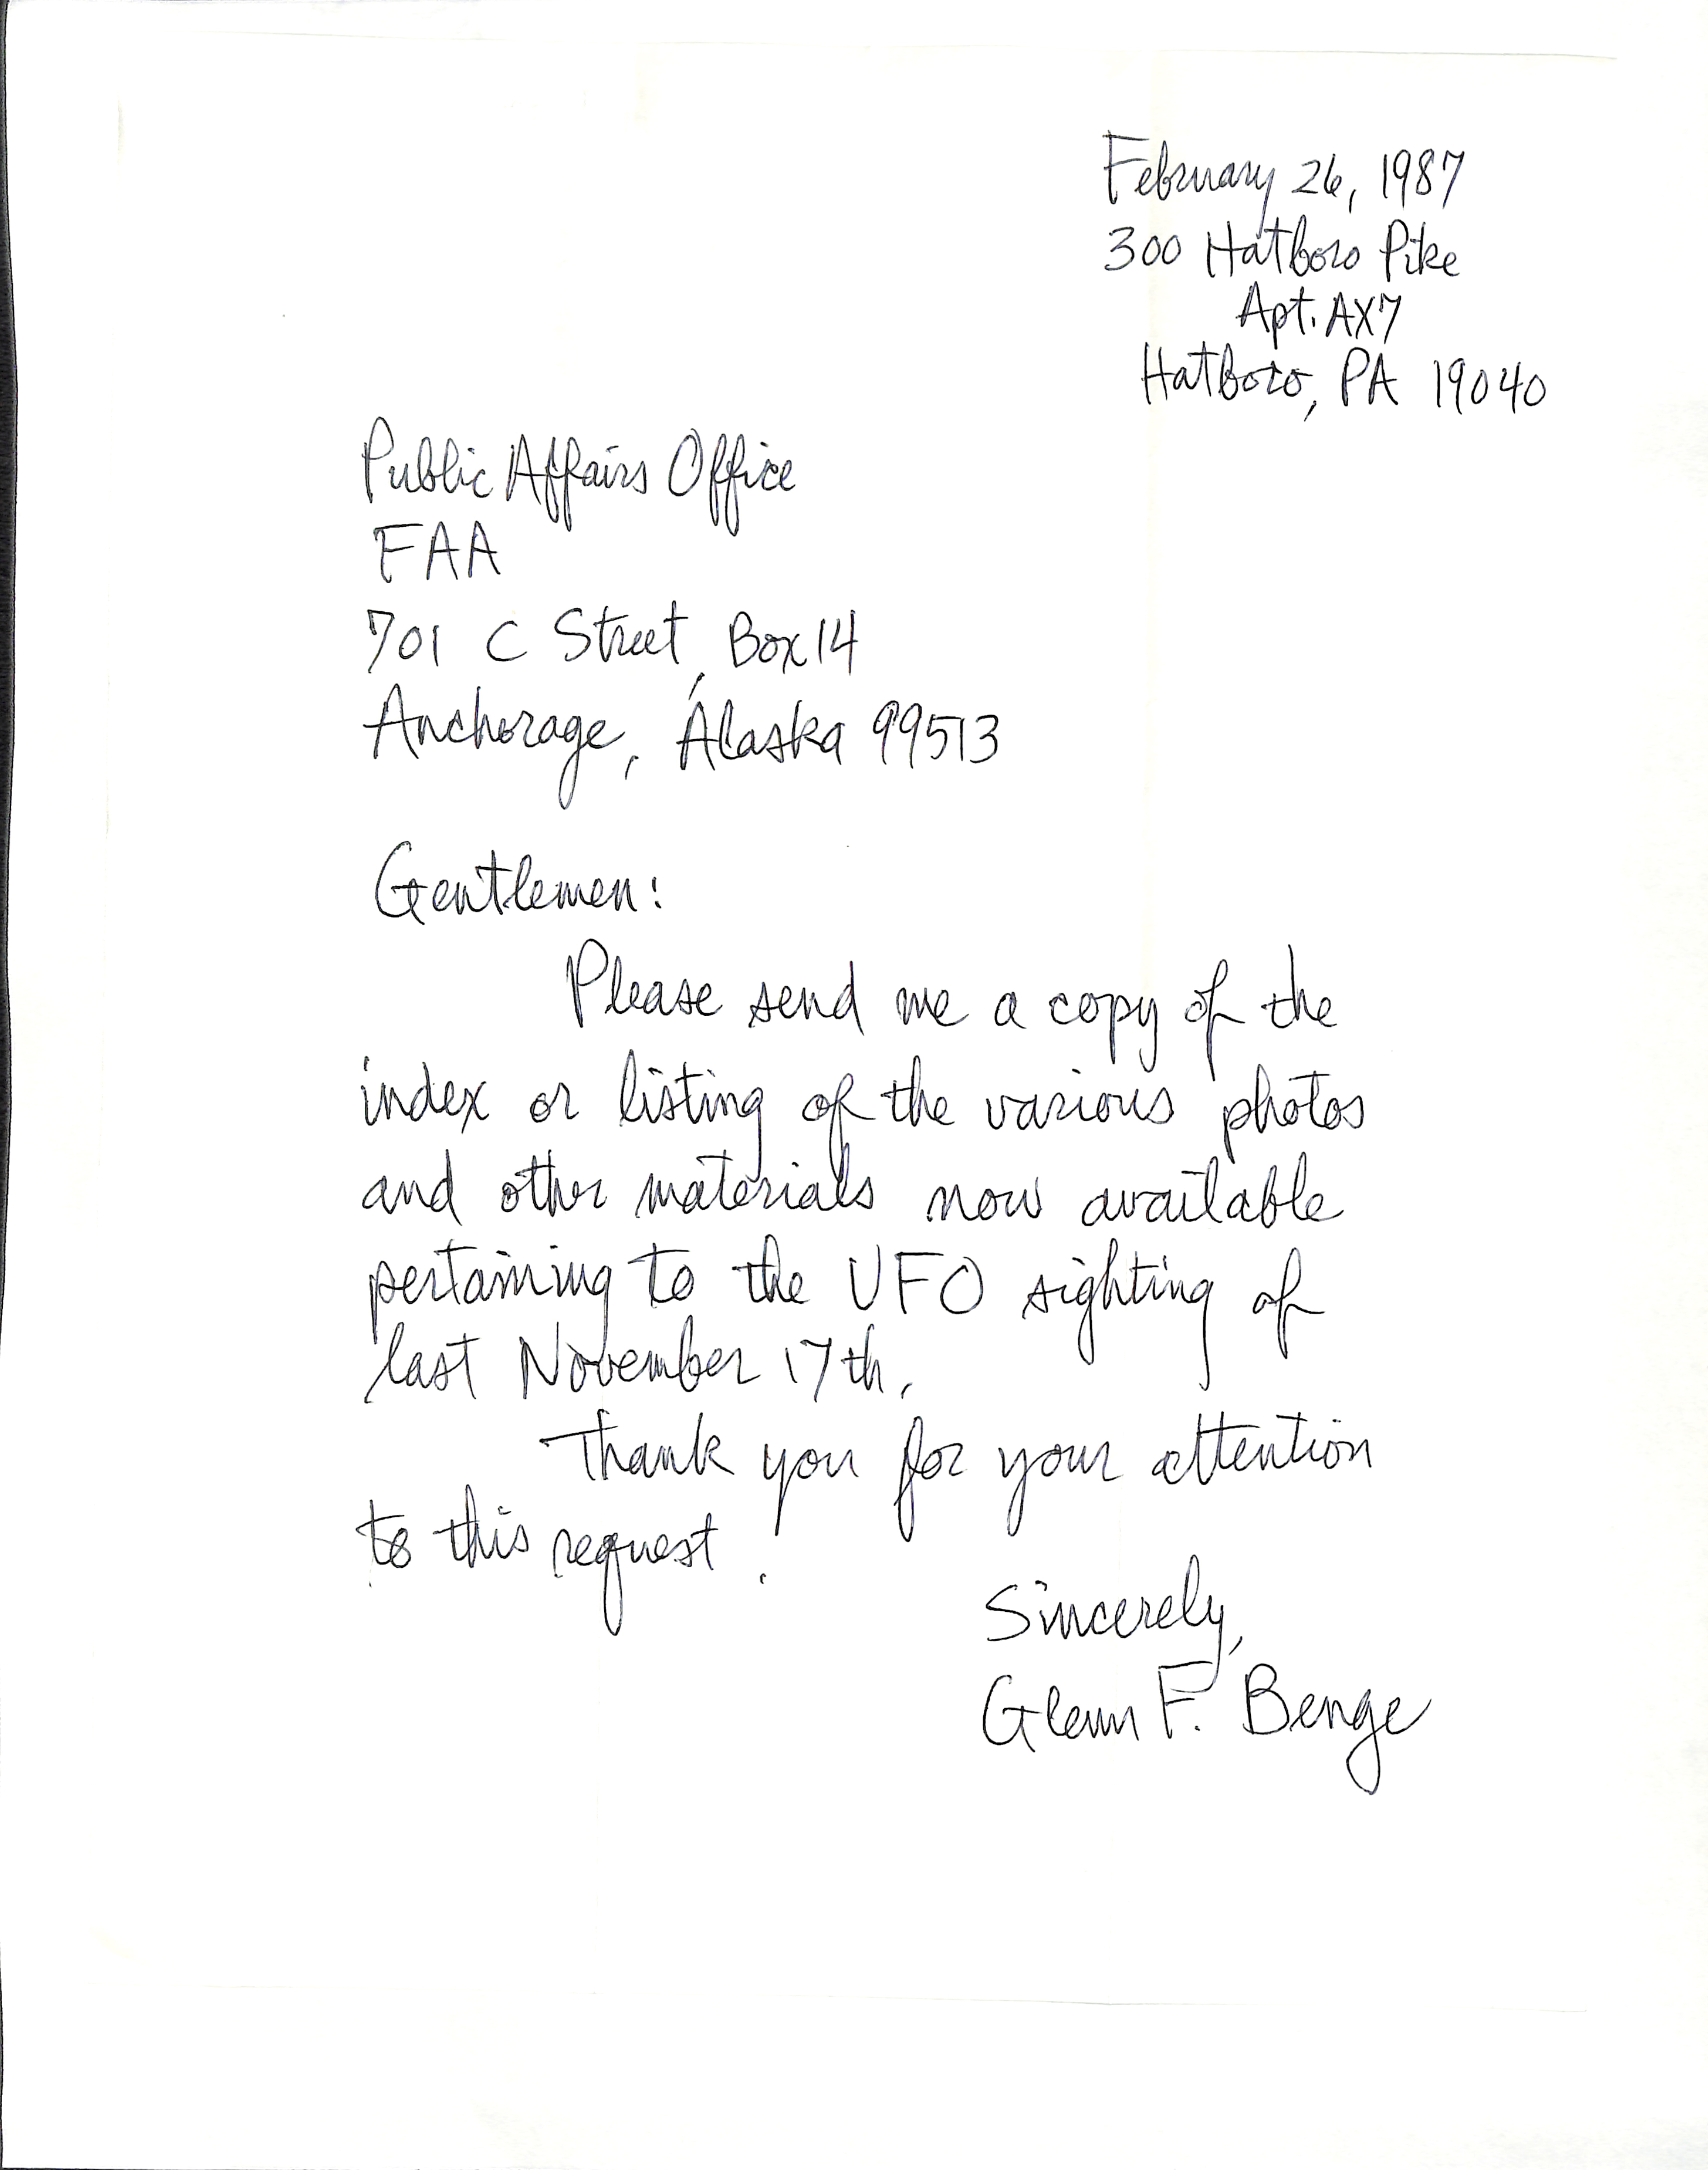 February 26, 1987
300 Hatboro Pike
Apt. AX7
Hatboro, PA 19040
Public Affairs Office
FAA
701 C Street, Box 14
Anchorage, Alaska 99513
Gentlemen:
Please send me a copy of the
index or listing of the various photos
and other materials now available
pertaining to the UFO sighting of
last November 17th.
Thank you for your attention
to this request.
Sincerely,
Glenn F. Benge